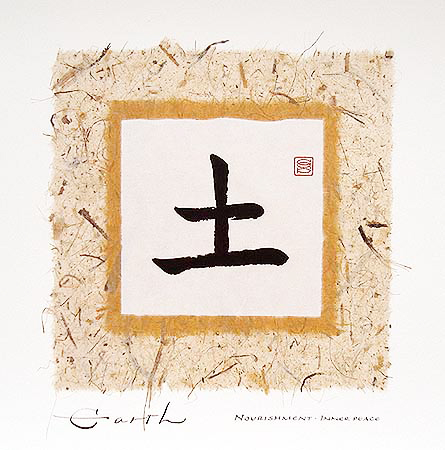 土
Earth
NOURISHMENT · INNER PEACE